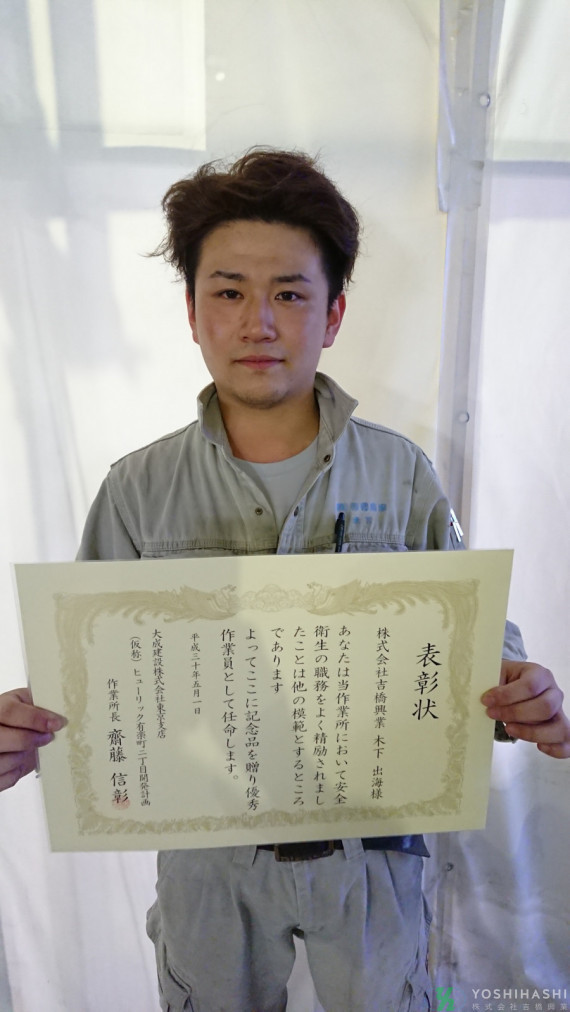 表彰状
株式会社吉橋興業 木下 出海様
あなたは当作業所において安全
衛生の職務をよく精励されまし
たことは他の模範とするところ
であります
よってここに記念品を贈り優秀
作業員として任命します。
平成三十年五月一日
大成建設株式会社東京支店
(仮称)ヒューリック有楽町二丁目開発計画
作業所長 齋藤 信彰
YOSHIHASHI
株式会社吉橋興業